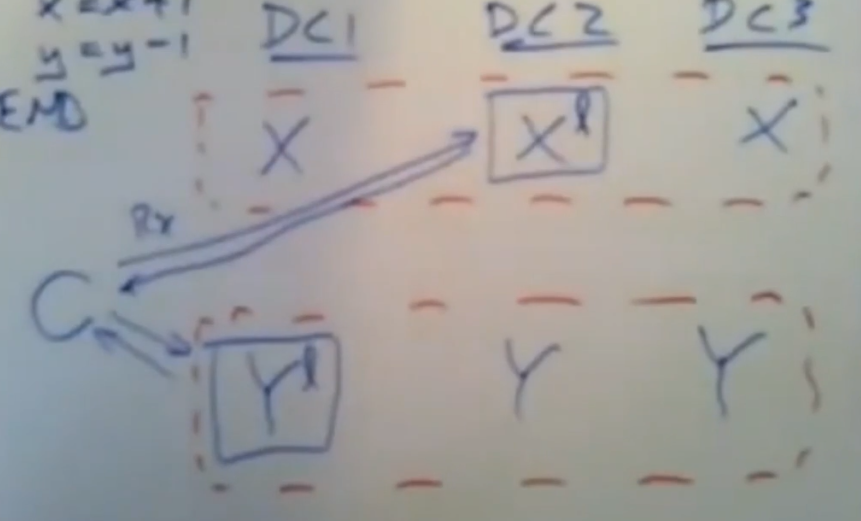 x = x + 1
y = y - 1
END
DC1 DC2 DC3
X X^l X
Rx
C
Y^l Y Y